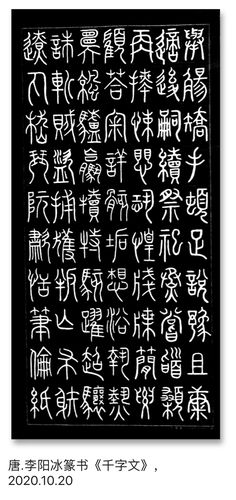 舉觴矯手頓足說豫且康
適後嗣續祭祀蒸嘗稽顙
再拜悚懼恐惶牋牒簡要
顧答審詳骸垢想浴執熱
願涼驢騾犢特駭躍超驤
誅斬賊盜捕獲叛亡布射
遼丸嵇琴阮嘯恬筆倫紙
唐.李阳冰篆书《千字文》，
2020.10.20